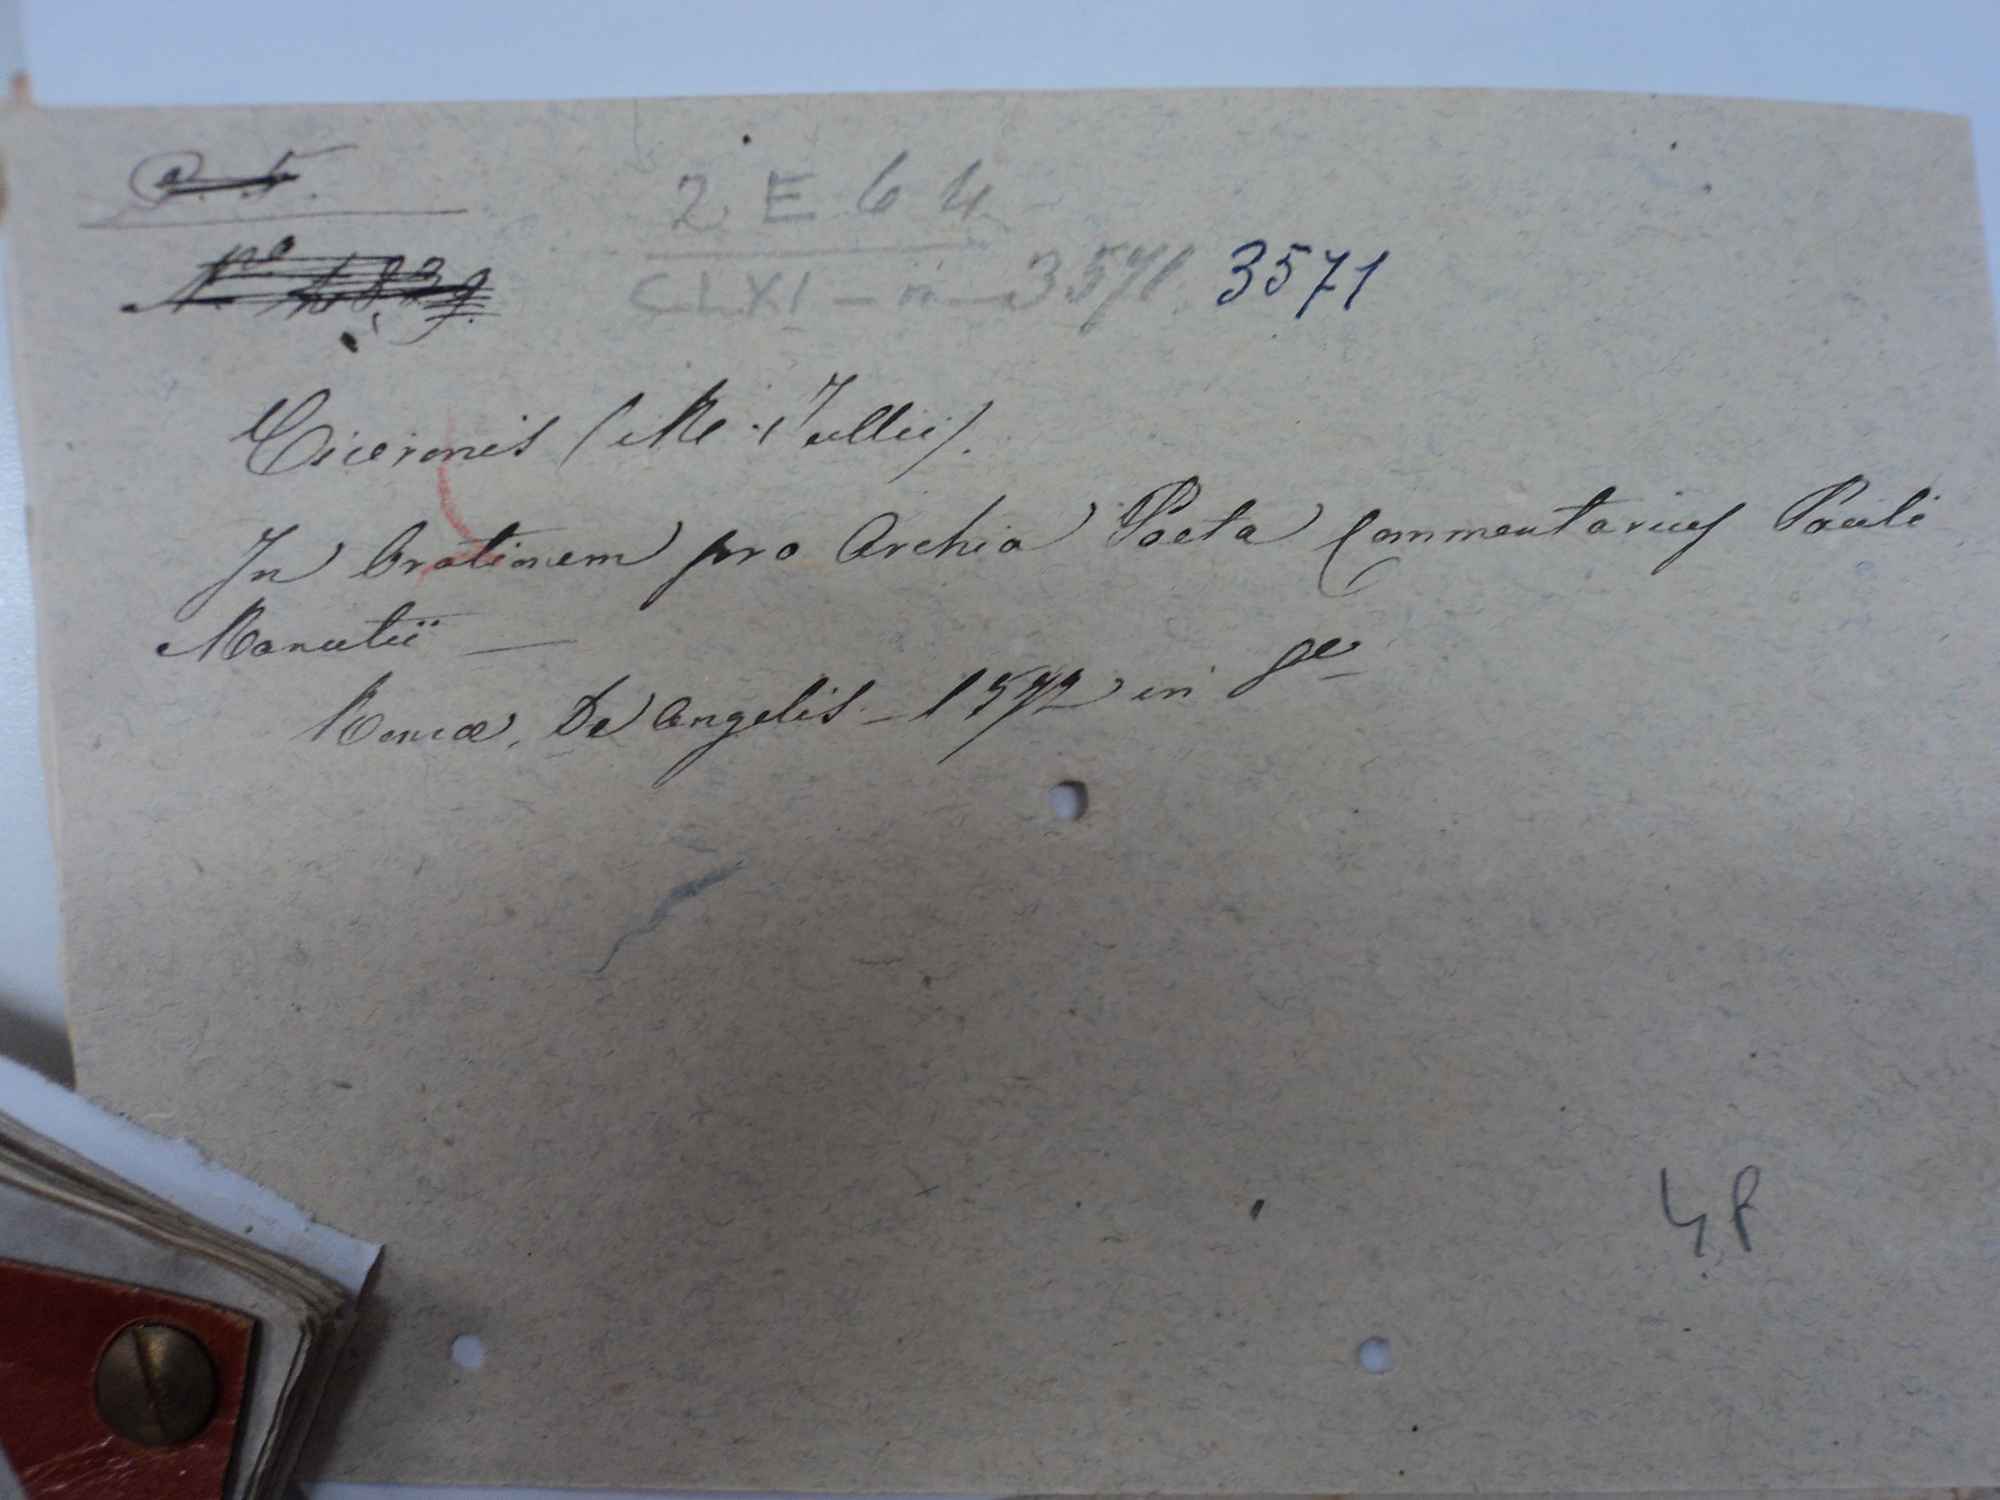 2 E 6 4
CLXI - n - 3571 3571
Nº 4839.
Ciceronis (M. Tullii).
In Orationem pro Archia Poeta Commentarius Pauli
Manutii —
Romæ, De Angelis - 1572 in 8º
4 P